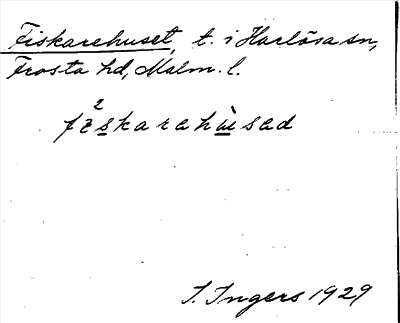 Fiskarehuset, t. i Harlösa sn,
Frosta hd, Malm. l.
fiskarahùsad
I. Ingers 1929